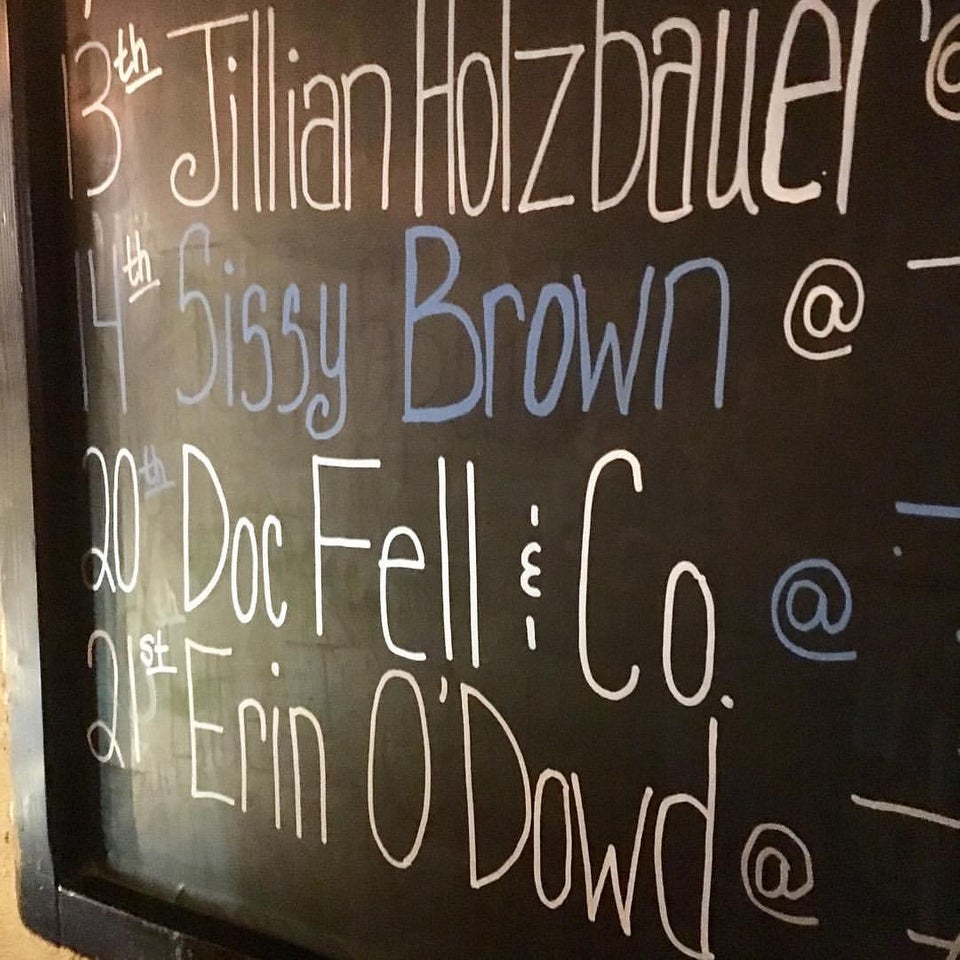 13th Jillian Holzbauer @
14th Sissy Brown @
20th Doc Fell & Co. @
21st Erin O'Dowd @